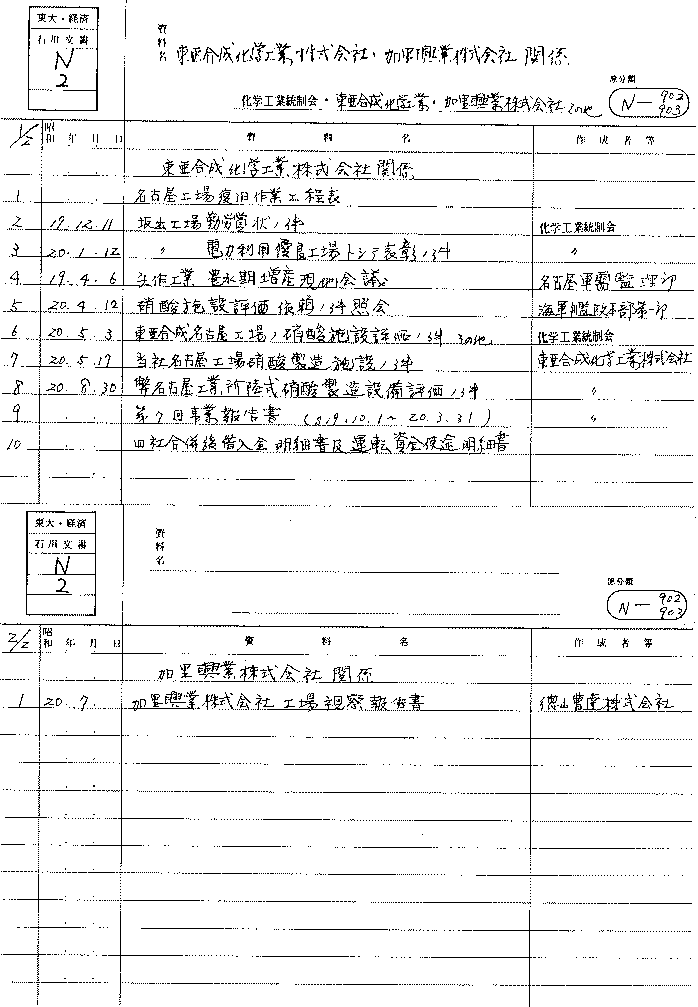 東大・経済
石川文書
N
2
資料名
東亜合成化学工業株式会社・加里興業株式会社 関係
化学工業統制会・東亜合成化学工業・加里興業株式会社 その他
原分類
N-902
903
1/2 昭和 年 月 日 資料名 作成者等
東亜合成化学工業株式会社関係
1 名古屋工場復旧作業工程表
2 19.12.11 坂出工場勤労賞状ノ件 化学工業統制会
3 20.1.12 〃 電力利用優良工場トシテ表彰ノ件 〃
4 19.4.6 工業 豊水期増産現地会議 名古屋軍需監理部
5 20.4.12 硝酸施設評価依頼ノ件照会 海軍艦政本部第一部
6 20.5.3 東亜合成名古屋工場ノ硝酸施設評価ノ件 その他 化学工業統制会
7 20.5.17 当社名古屋工場硝酸製造施設ノ件 東亜合成化学工業株式会社
8 20.8.30 弊名古屋工業所陸式硝酸製造設備評価ノ件 〃
9 第7回事業報告書 (S19.10.1~20.3.31) 〃
10 四社合併後借入金明細書及運転資金使途明細書
東大・経済
石川文書
N
2
資料名
原分類
N-902
903
2/2 昭和 年 月 日 資料名 作成者等
加里興業株式会社関係
1 20.7. 加里興業株式会社工場視察報告書 徳山曹達株式会社